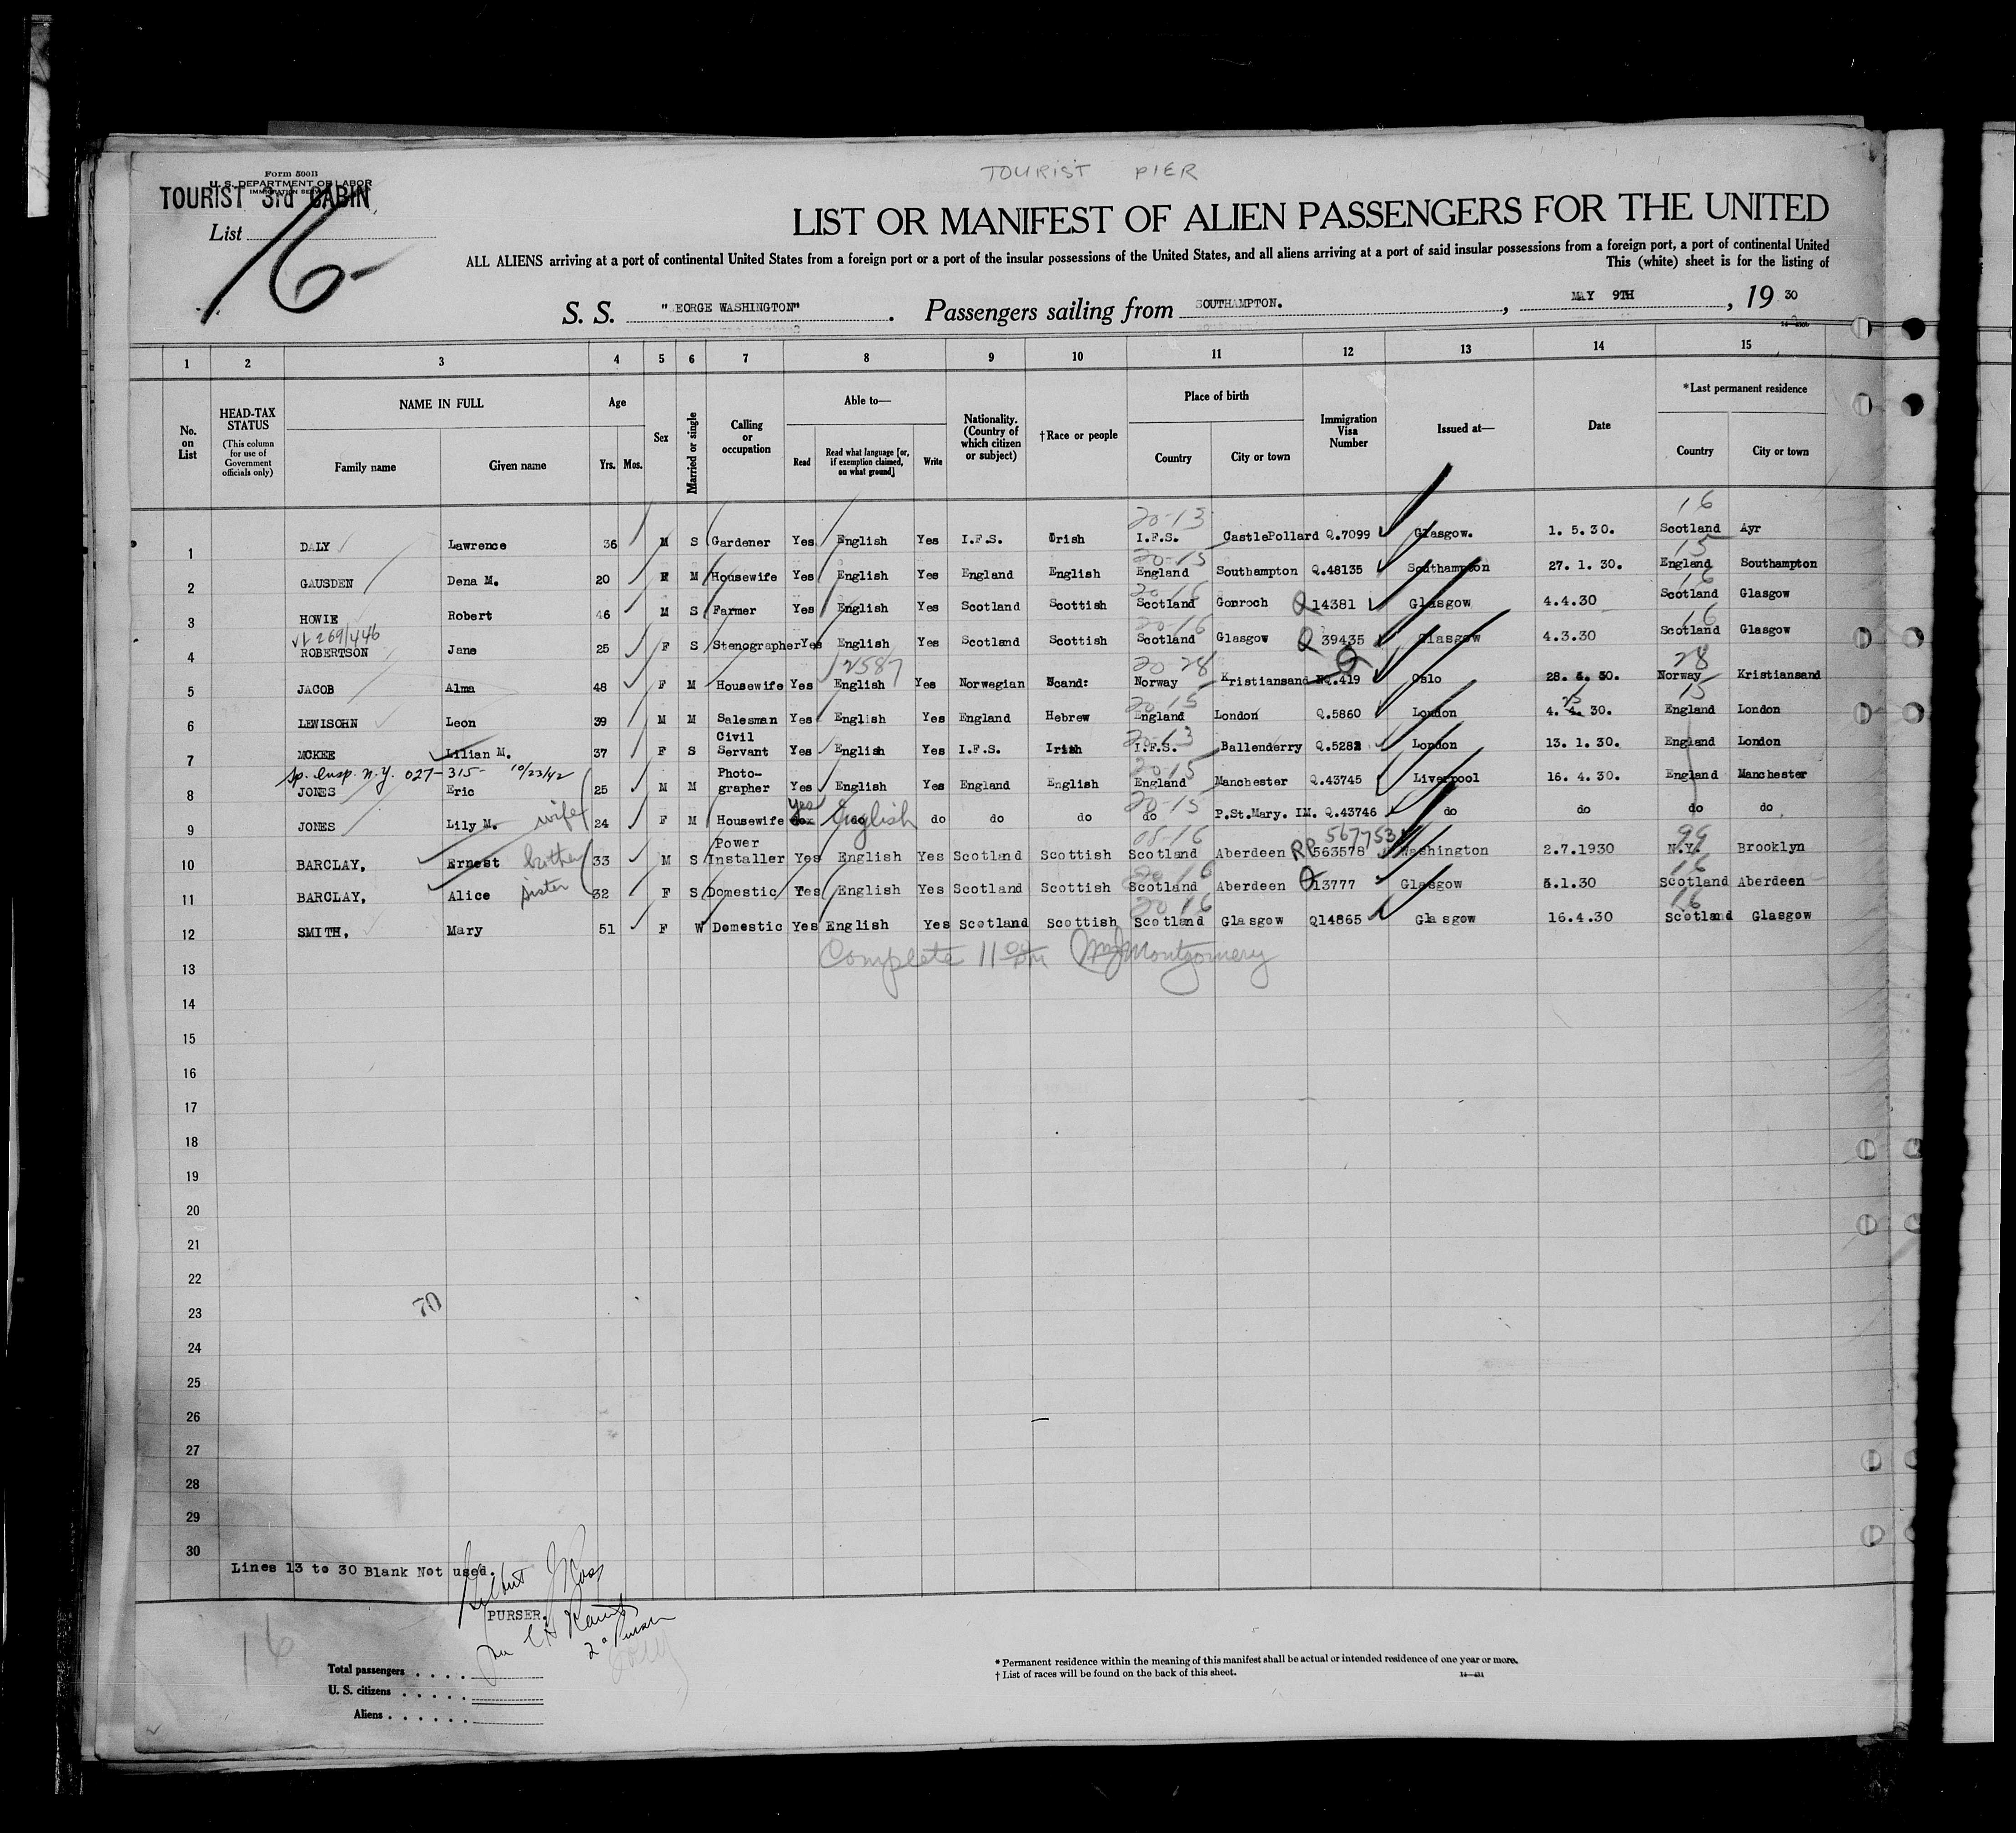 TOURIST PIER
Form 500B
U. S. DEPARTMENT OF LABOR
IMMIGRATION SERVICE
TOURIST 3rd CABIN
List
16
LIST OR MANIFEST OF ALIEN PASSENGERS FOR THE UNITED
ALL ALIENS arriving at a port of continental United States from a foreign port or a port of the insular possessions of the United States, and all aliens arriving at a port of said insular possessions from a foreign port, a port of continental United
This (white) sheet is for the listing of
S. S. "EORGE WASHINGTON". Passengers sailing from SOUTHAMPTON., MAY 9TH, 19 30
1 2 3 4 5 6 7 8 9 10 11 12 13 14 15
No. on List
HEAD-TAX STATUS (This column for use of Government officials only)
NAME IN FULL
Family name Given name
Age
Yrs. Mos.
Sex
Married or single
Calling or occupation
Able to—
Read
Read what language [or, if exemption claimed, on what ground]
Write
Nationality. (Country of which citizen or subject)
†Race or people
Place of birth
Country City or town
Immigration Visa Number
Issued at—
Date
*Last permanent residence
Country City or town
20-13 16
1 DALY Lawrence 36 M S Gardener Yes English Yes I.F.S. Irish I.F.S. CastlePollard Q.7099 Glasgow. 1. 5. 30. Scotland Ayr
20-15 15
2 GAUSDEN Dena M. 20 F M Housewife Yes English Yes England English England Southampton Q.48135 Southampton 27. 1. 30. England Southampton
20-16 16
3 HOWIE Robert 46 M S Farmer Yes English Yes Scotland Scottish Scotland Gonroch Q 14381 Glasgow 4.4.30 Scotland Glasgow
VL 269/446 20-16 16
4 ROBERTSON Jane 25 F S Stenographer Yes English Yes Scotland Scottish Scotland Glasgow Q 39435 Glasgow 4.3.30 Scotland Glasgow
12587 20 28 Q 28
5 JACOB Alma 48 F M Housewife Yes English Yes Norwegian Scand: Norway Kristiansand NQ.419 Oslo 28. 3. 30. Norway Kristiansand
20-15 15
6 LEWISOHN Leon 39 M M Salesman Yes English Yes England Hebrew England London Q.5860 London 4. 4. 30. England London
20-13
7 MCKEE Lilian M. 37 F S Civil Servant Yes English Yes I.F.S. Irish I.F.S. Ballenderry Q.5282 London 13. 1. 30. England London
Sp. Insp. N.Y. 027-315- 10/23/42 20-15
8 JONES Eric 25 M M Photo-grapher Yes English Yes England English England Manchester Q.43745 Liverpool 16. 4. 30. England Manchester
yes 20-15
9 JONES Lily M. wife 24 F M Housewife do English do do do do P.St.Mary. IM. Q.43746 do do do do
05-16 567753 99
10 BARCLAY, Ernest brother 33 M S Power Installer Yes English Yes Scotland Scottish Scotland Aberdeen RP 563578 Washington 2.7.1930 N.Y. Brooklyn
20 16 16
11 BARCLAY, Alice sister 32 F S Domestic Yes English Yes Scotland Scottish Scotland Aberdeen Q 13777 Glasgow 8.1.30 Scotland Aberdeen
20 16 16
12 SMITH, Mary 51 F W Domestic Yes English Yes Scotland Scottish Scotland Glasgow Q14865 Glasgow 16.4.30 Scotland Glasgow
Complete 11 Montgomery
13
14
15
16
17
18
19
20
21
22
23
70
24
25
26
27
28
29
30
Lines 13 to 30 Blank Not used.
PURSER.
16
Total passengers . . . .
U. S. citizens . . . . .
Aliens . . . . . .
* Permanent residence within the meaning of this manifest shall be actual or intended residence of one year or more.
† List of races will be found on the back of this sheet.